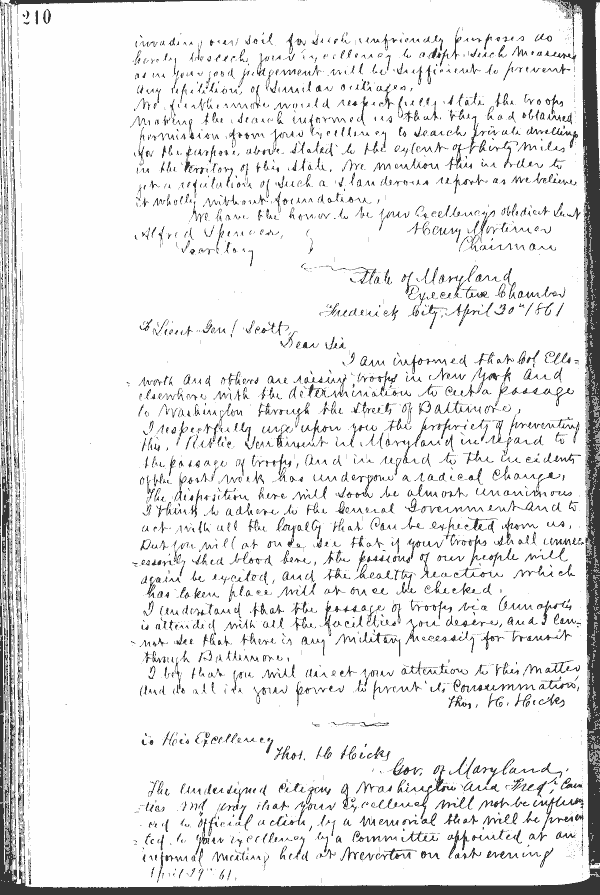 210
invading our soil for such unfriendly purposes do
hereby beseech your excellency to adopt such measures
as in your good judgement will be sufficient to prevent
any repitition of similar outrages.
We furthermore would respectfully state the troops
making the search informed us that they had obtained
permission from your excellency to search private dwellings
for the purpose above stated to the extent of thirty miles
in the territory of this State. We mention this in order to
get a refutation of such a slanderous report as we believe
it wholly without foundation.
We have the honor to be your Excellency's obedient Servt
Alfred Spencer, Henry Mortimer
Secretary Chairman
State of Maryland
Executive Chamber
Frederick City, April 30th 1861
To Lieut Gen! Scott,
Dear Sir
I am informed that Col. Ells=
worth and others are raising troops in New York and
elsewhere with the determination to cut a passage
to Washington through the streets of Baltimore,
I respectfully urge upon you the propriety of preventing
this. Public Sentiment in Maryland in regard to
the passage of troops, and in regard to the incidents
of the past week has undergone a radical change,
The disposition here will soon be almost unanimous
I think to adhere to the General Government and to
act with all the loyalty that can be expected from us,
But you will at once see that if your troops shall unnec
=essarily shed blood here, the passions of our people will
again be excited, and the healthy reaction which
has taken place will at once be checked.
I understand that the passage of troops via Annapolis
is attended with all the facilities you desire, and I can-
not see that there is any military necessity for transit
through Baltimore.
I beg that you will direct your attention to this matter
and do all in your power to prevnt its consummation,
Thos. H. Hicks
To His Excellency
Thos. H Hicks
Gov. of Maryland,
The undersigned citizens of Washington and Fred'k Coun
=ties and pray that your Excellency will not be influen
=ced to official action, by a memorial that will be presen
=ted to your excellency by a Committee appointed at an
informal meeting held at Weverton on last evening
April 29th 61.